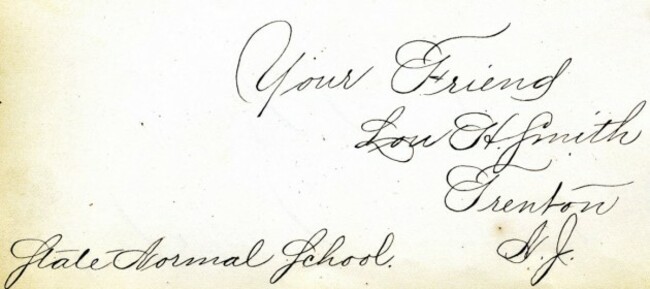 Your Friend
Lou H. Smith
Trenton
State Normal School. N.J.